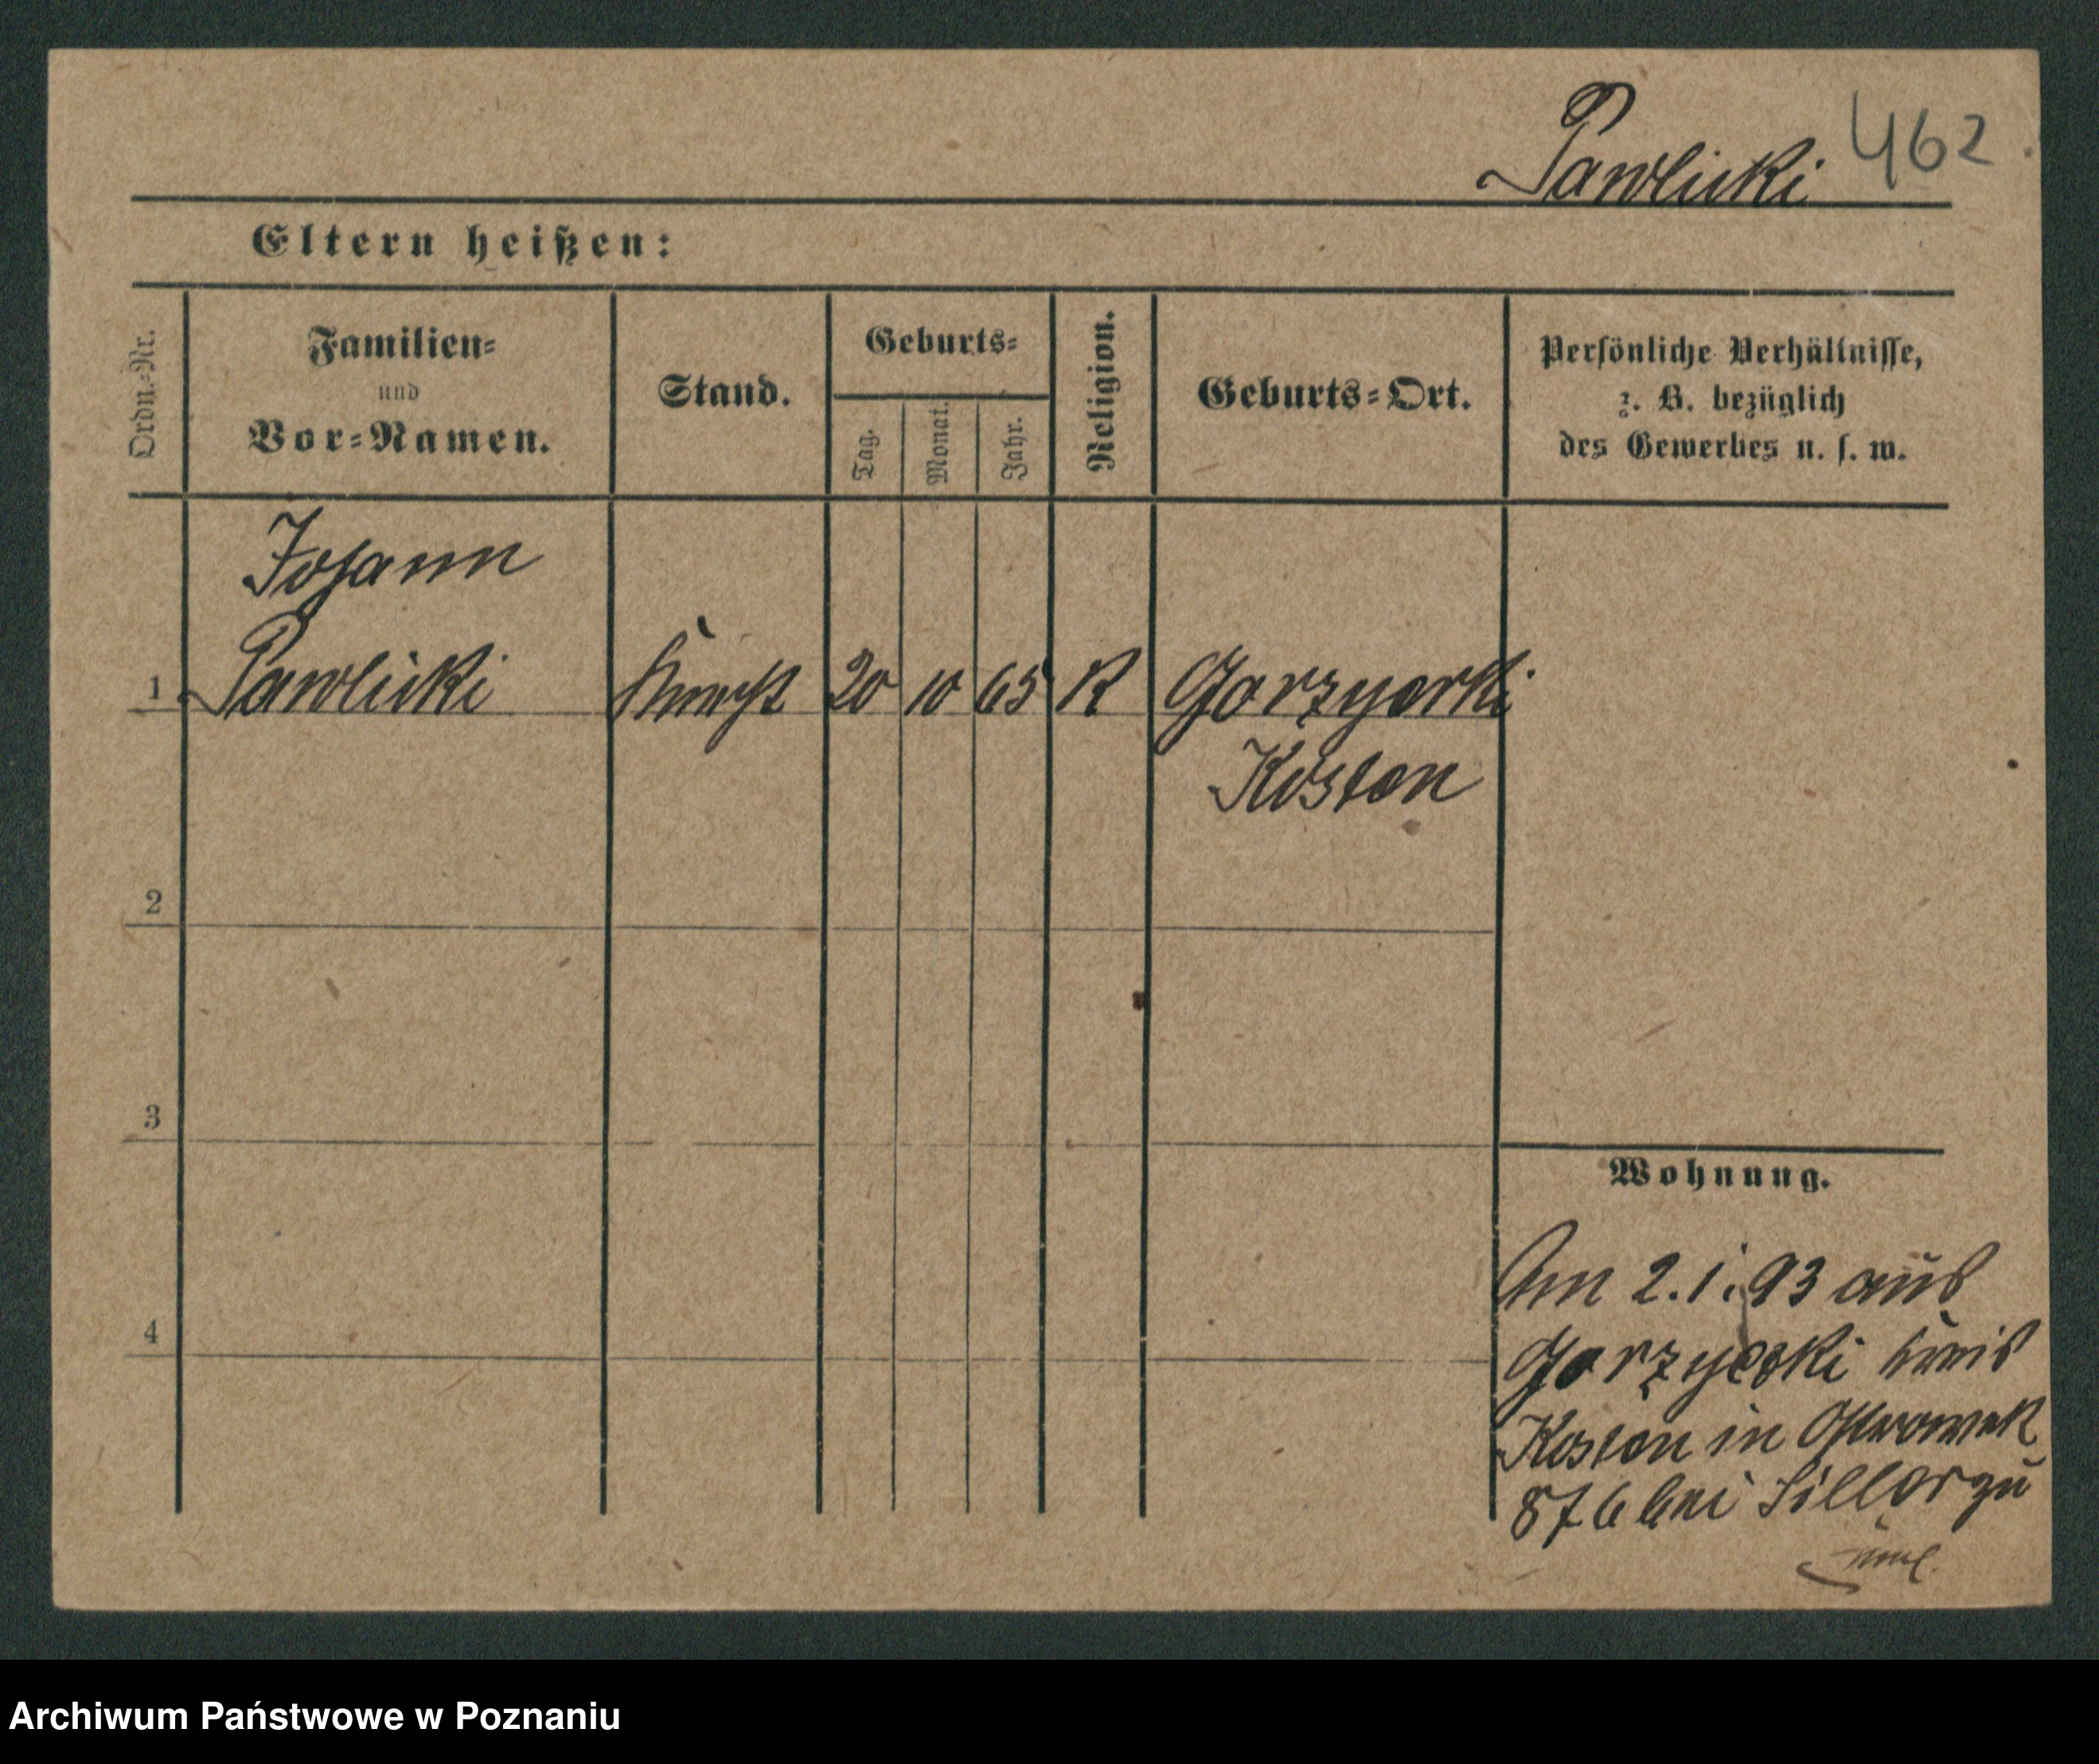 Pawlicki 462
Eltern heißen:
Ordn.-Nr.
Familien-
und
Vor-Namen.
Stand.
Geburts-
Tag.
Monat.
Jahr.
Religion.
Geburts-Ort.
Persönliche Verhältnisse,
z. B. bezüglich
des Gewerbes u. s. w.
Johann
1 Pawlicki Knecht 20 10 65 K Gorzyczki
Kosten
2
3
4
Wohnung.
Am 2.1.93 aus
Gorzyczki Kreis
Kosten in Ostrowek
876 bei Siller zu
Archiwum Państwowe w Poznaniu